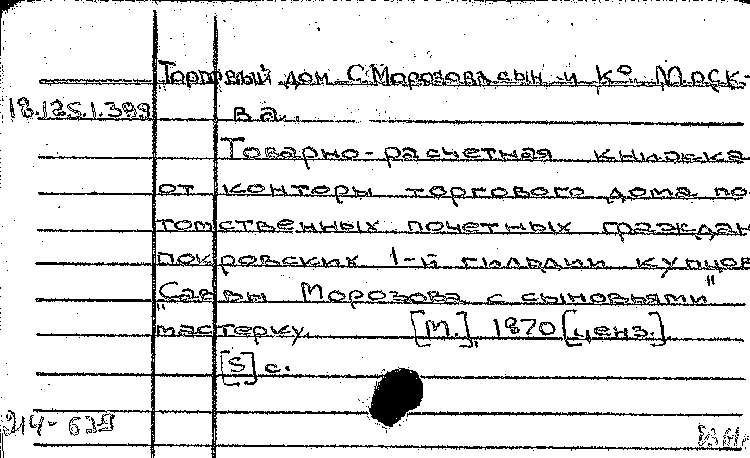 Торговый дом С. Морозова сын и К° Моск-
18.125.1.399 ва.
Товарно-расчетная книжка
от конторы торгового дома по-
томственных почетных граждан
покровских 1-й гильдии купцов
"Саввы Морозова с сыновьями"
мастерку. [М.], 1870 [ценз.]
[5] с.
214-639